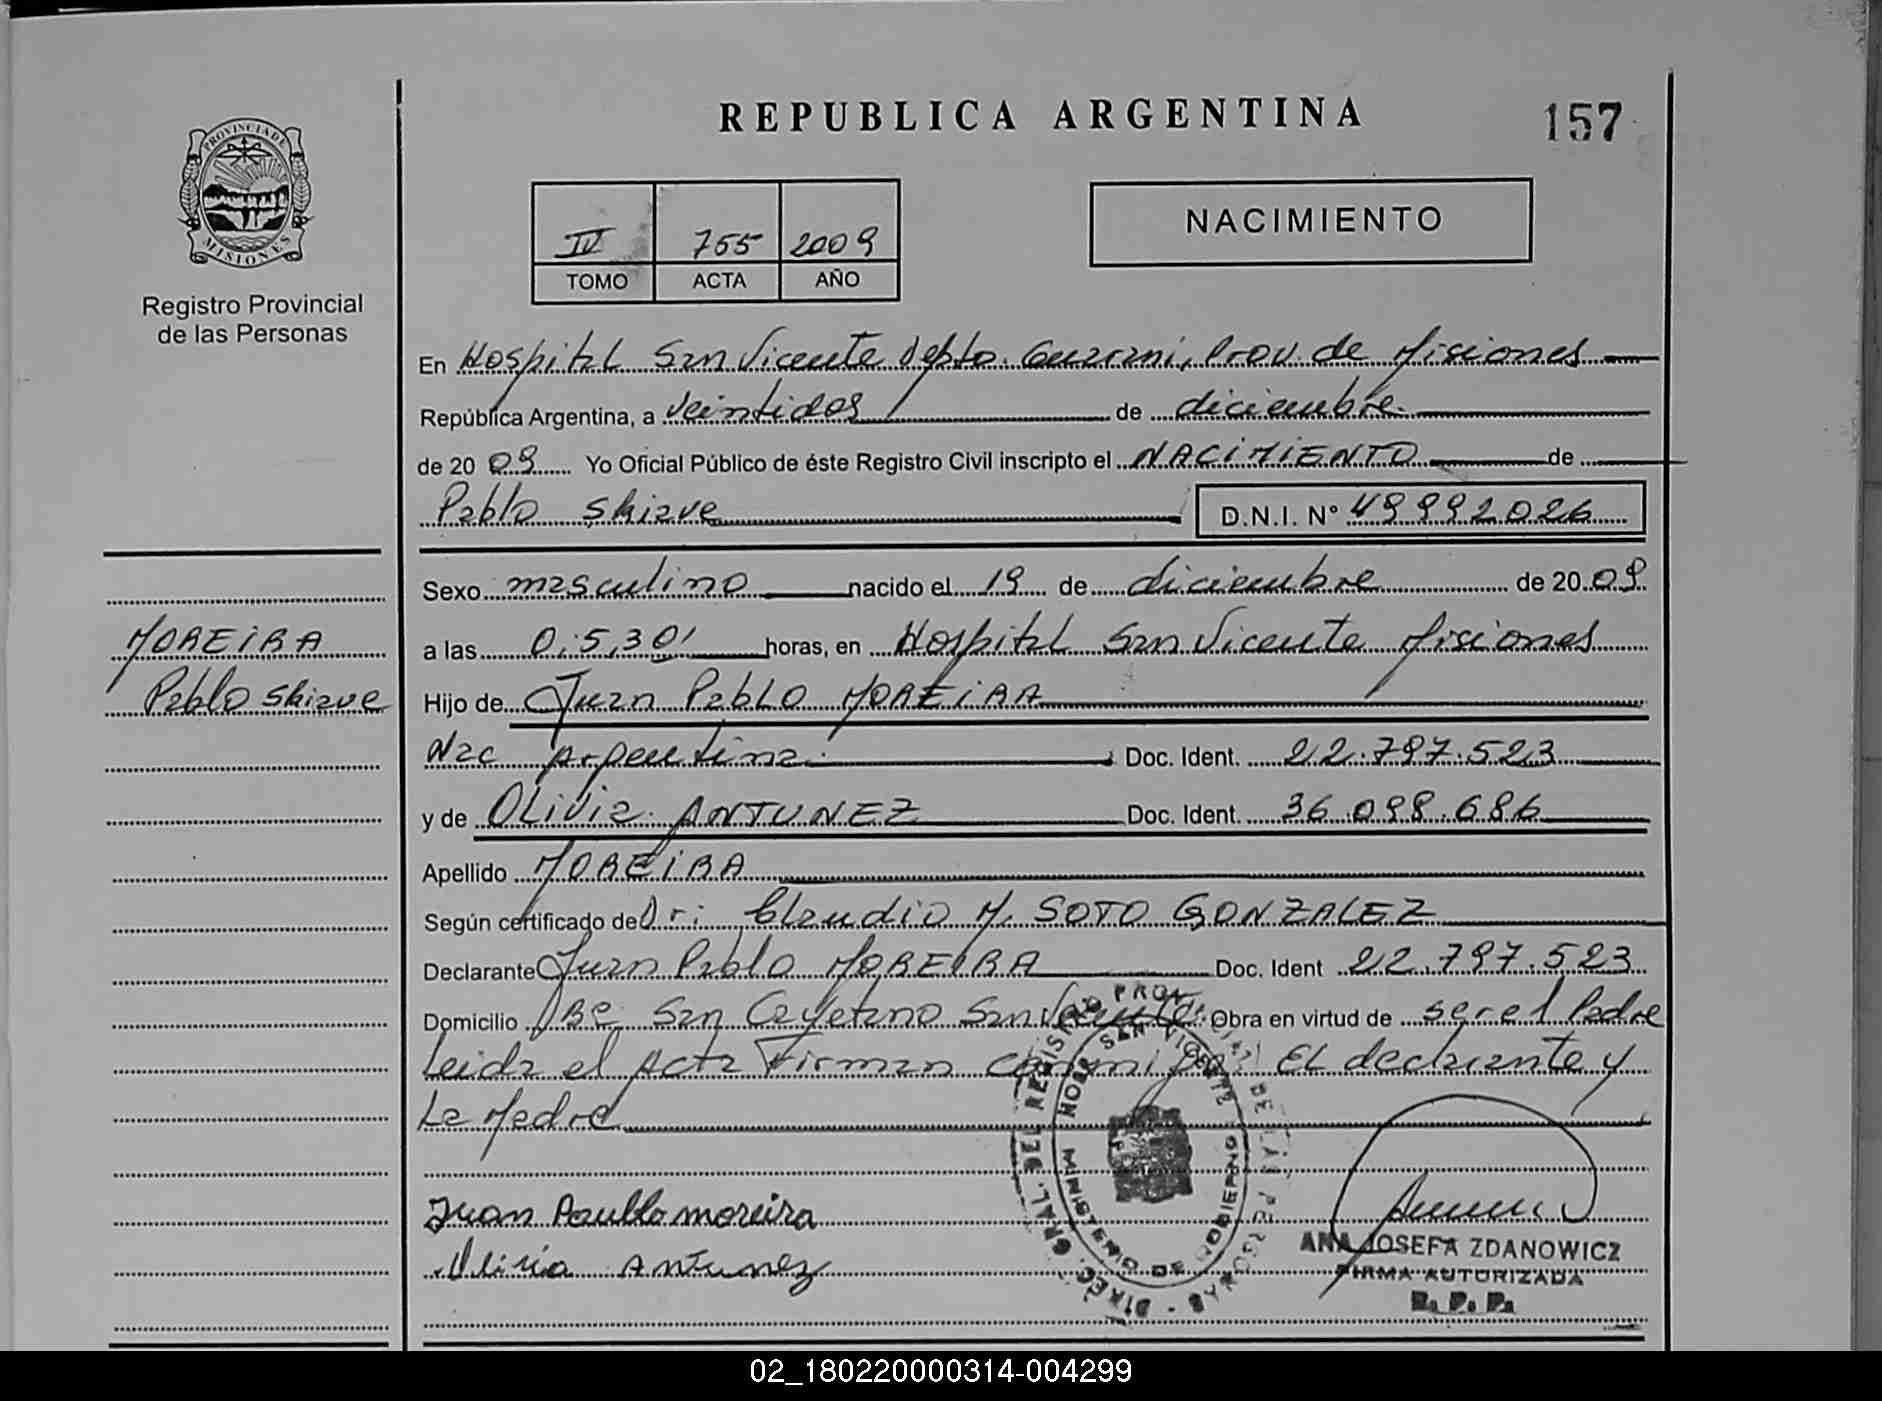 REPUBLICA ARGENTINA
157
PROVINCIA DE MISIONES
Registro Provincial
de las Personas
IV 755 2009
TOMO ACTA AÑO
NACIMIENTO
En Hospital San Vicente Depto. Guarani, Prov. de Misiones
República Argentina, a veintidos de diciembre
de 20 09 Yo Oficial Público de éste Registro Civil inscripto el NACIMIENTO de
Pablo D.N.I. Nº 49992026
Sexo masculino nacido el 19 de diciembre de 20 09
a las 05,30' horas, en Hospital San Vicente Misiones
MOREIRA
Pablo
Hijo de Juan Pablo MOREIRA
Nac Argentina Doc. Ident. 22.797.523
y de OLiVia ANTUNEZ Doc. Ident. 36.098.686
Apellido MOREIRA
Según certificado de Dr: Claudio M. SOTO GONZALEZ
Declarante Juan Pablo MOREIRA Doc. Ident 22.797.523
Domicilio San Cayetano San Vicente Obra en virtud de ser el Padre
Leida el Acta Firman conmigo EL declarante y
La Madre
Juan Paublo moreira
Olivia Antunez
DIREC. GRAL. DEL REGISTRO PROV. DE LAS PERSONAS
HOSP. SAN VICENTE
MINISTERIO DE GOBIERNO
ANA JOSEFA ZDANOWICZ
FIRMA AUTORIZADA
R. P. P.
02_180220000314-004299